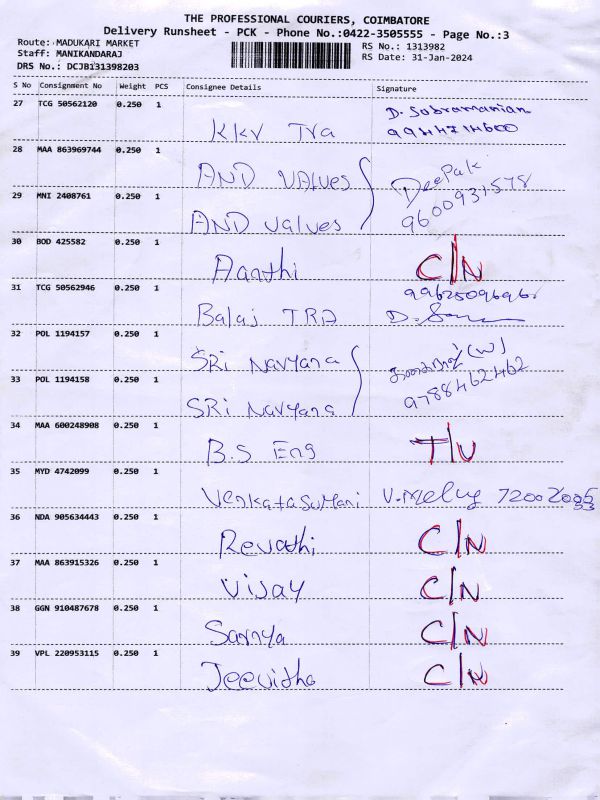 THE PROFESSIONAL COURIERS, COIMBATORE
Delivery Runsheet - PCK - Phone No.:0422-3505555 - Page No.:3
Route: MADUKARI MARKET
Staff: MANIKANDARAJ
DRS No.: DCJB131398203
RS No.: 1313982
RS Date: 31-Jan-2024
S No Consignment No Weight PCS Consignee Details Signature
27 TCG 50562120 0.250 1 KKV Tra D. Subramanian
9944714600
28 MAA 863969744 0.250 1 AND VALVES DeePak
29 MNI 2408761 0.250 1 AND Valves 9600931578
30 BOD 425582 0.250 1 Aanthi C/N
31 TCG 50562946 0.250 1 Balaj TRA
32 POL 1194157 0.250 1 SRi Navyana (W)
33 POL 1194158 0.250 1 SRi Navyana 9788462462
34 MAA 600248908 0.250 1 B.S Eng T/U
35 MYD 4742099 0.250 1 VenkataSumani
36 NDA 905634443 0.250 1 Revathi C/N
37 MAA 863915326 0.250 1 Vijay C/N
38 GGN 910487678 0.250 1 Sarnya C/N
39 VPL 220953115 0.250 1 Jeevitha C/N